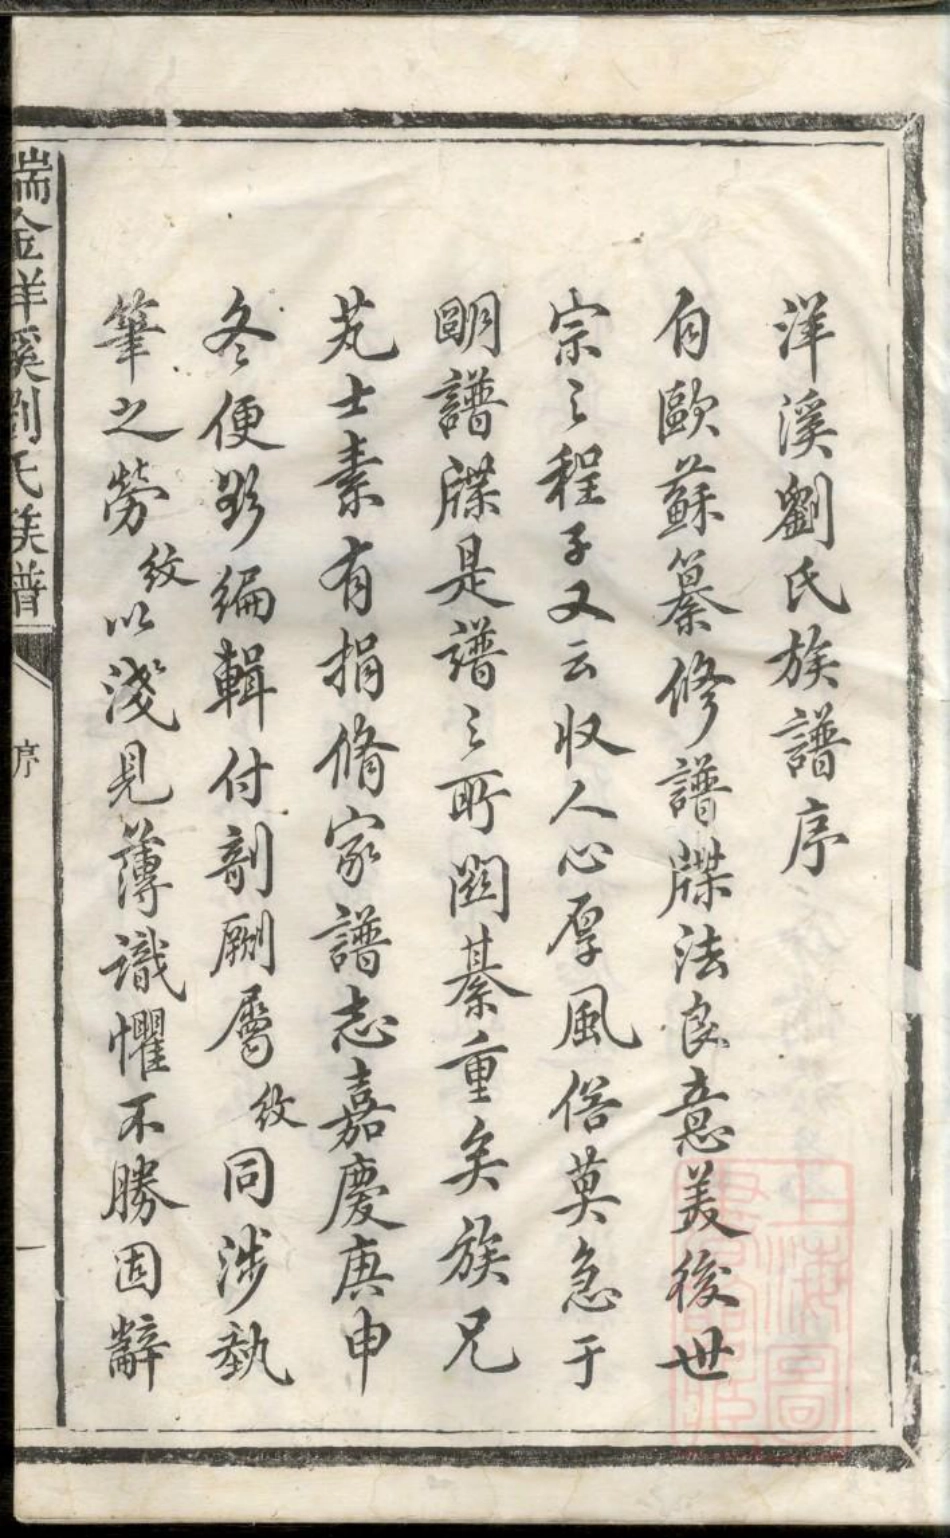 洋溪劉氏族譜序
自歐蘇纂修譜牒法良意美後世
宗之程子又云收人心厚風俗莫急于
明譜牒是譜之所関綦重矣族兄
芄士素有捐脩家譜志嘉慶庚申
冬便欲編輯付剞劂屬紋同涉執
筆之勞紋以淺見薄識懼不勝固辭
瑞金洋溪劉氏族譜
序
一
上海圖